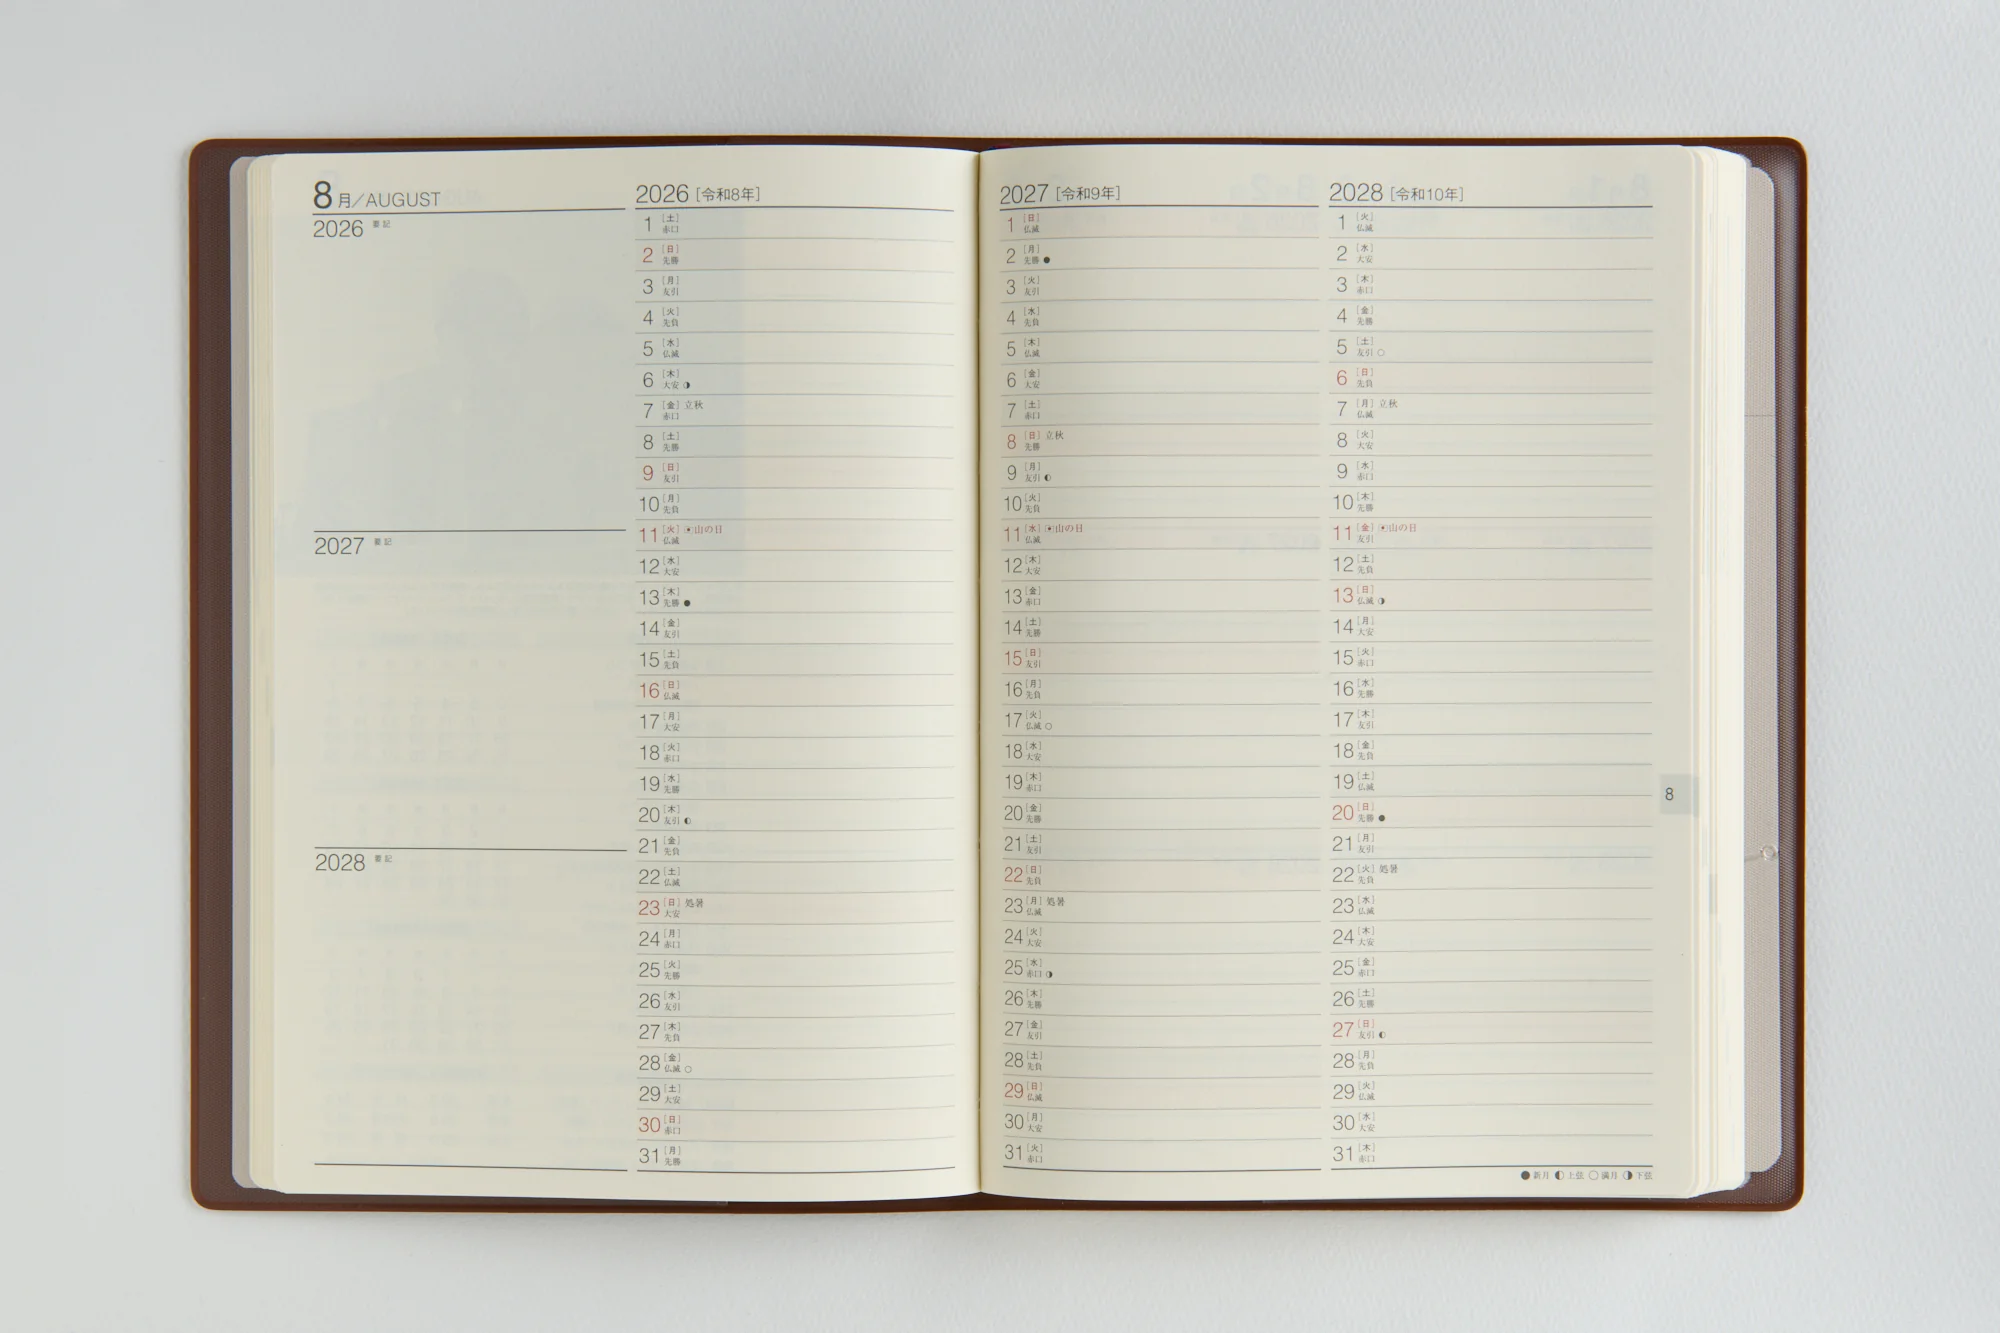 8月／AUGUST
2026 要記
2027 要記
2028 要記
2026［令和8年］
1［土］
赤口
2［日］
先勝
3［月］
友引
4［火］
先負
5［水］
仏滅
6［木］
大安 ◑
7［金］立秋
赤口
8［土］
先勝
9［日］
友引
10［月］
先負
11［火］山の日
仏滅
12［水］
大安
13［木］
先勝 ●
14［金］
友引
15［土］
先負
16［日］
仏滅
17［月］
大安
18［火］
赤口
19［水］
先勝
20［木］
友引 ◐
21［金］
先負
22［土］
仏滅
23［日］処暑
大安
24［月］
赤口
25［火］
先勝
26［水］
友引
27［木］
先負
28［金］
仏滅 ○
29［土］
大安
30［日］
赤口
31［月］
先勝
2027［令和9年］
1［日］
仏滅
2［月］
先勝 ●
3［火］
友引
4［水］
先負
5［木］
仏滅
6［金］
大安
7［土］
赤口
8［日］立秋
先勝
9［月］
友引 ◐
10［火］
先負
11［水］山の日
仏滅
12［木］
大安
13［金］
赤口
14［土］
先勝
15［日］
友引
16［月］
先負
17［火］
仏滅 ○
18［水］
大安
19［木］
赤口
20［金］
先勝
21［土］
友引
22［日］
先負
23［月］処暑
仏滅
24［火］
大安
25［水］
赤口 ◑
26［木］
先勝
27［金］
友引
28［土］
先負
29［日］
仏滅
30［月］
大安
31［火］
赤口
2028［令和10年］
1［火］
仏滅
2［水］
大安
3［木］
赤口
4［金］
先勝
5［土］
友引 ○
6［日］
先負
7［月］立秋
仏滅
8［火］
大安
9［水］
赤口
10［木］
先勝
11［金］山の日
友引
12［土］
先負
13［日］
仏滅 ◑
14［月］
大安
15［火］
赤口
16［水］
先勝
17［木］
友引
18［金］
先負
19［土］
仏滅
20［日］
先勝 ●
21［月］
友引
22［火］処暑
先負
23［水］
仏滅
24［木］
大安
25［金］
赤口
26［土］
先勝
27［日］
友引 ◐
28［月］
先負
29［火］
仏滅
30［水］
大安
31［木］
赤口
8
●新月 ◐上弦 ○満月 ◑下弦